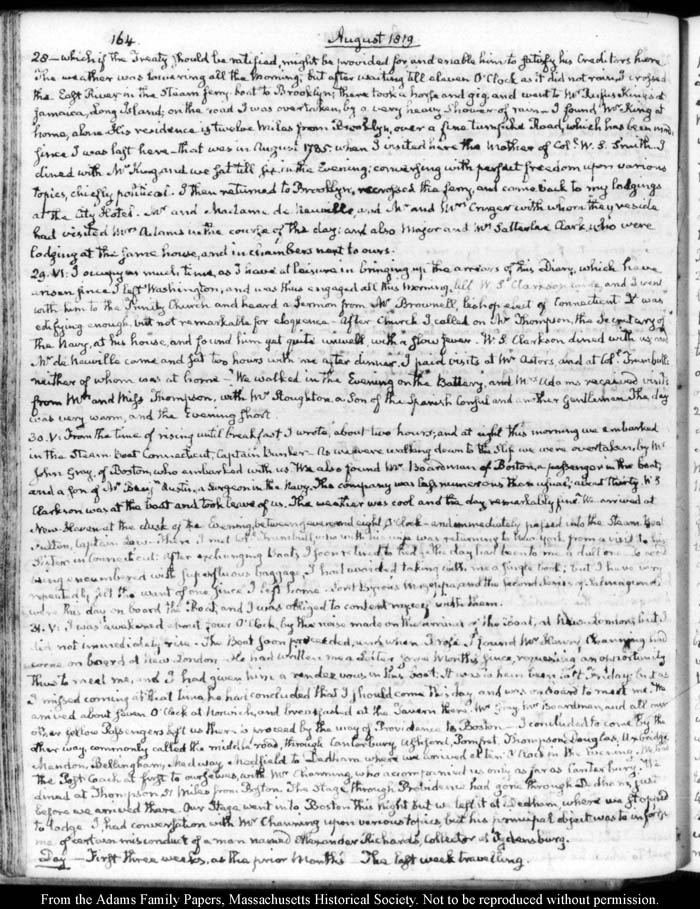 164 August 1819
28 — which if the Treaty should be ratified, might be provided for and enable him to satisfy his Creditors here
The weather was lowering all the morning; but after waiting till eleven O'Clock as it did not rain, I crossed
the East River in the Steam ferry-boat to Brooklyn; there took a horse and gig and went to Mr Rufus King's at
Jamaica, Long Island; on the road I was overtaken by a very heavy Shower of rain — I found Mr King at
home, alone. His residence is twelve Miles from Brooklyn, over a fine turnpike Road, which has been made
since I was last here — that was in August 1785. when I visited here the Mother of Coll. W. S. Smith. I
dined with Mr King, and we sat till six in the Evening; conversing with perfect freedom upon various
topics, chiefly political. I then returned to Brooklyn, recrossed the ferry, and came back to my lodgings
at the City Hotel. Mr and Madame de Neuville, and Mr and Mrs Cruger with whom they reside
had visited Mrs Adams in the course of the day; and also Major and Mrs Satterlee Clark, who were
lodging at the same house, and in chambers next to ours.
29. VI. I occupy as much time, as I have at leisure in bringing up the arrears of this Diary, which have
arisen since I left Washington, and was thus engaged all this morning, till W. S. Clarkson and I went
with him to the Trinity Church and heard a Sermon from Mr Brownell, bishop elect of Connecticut. It was
edifying enough, but not remarkable for eloquence — After Church I called on Mr Thompson, the Secretary of
the Navy, at his house, and found him yet quite unwell with a slow fever. W. S. Clarkson dined with us, and
Mr de Neuville came and sat two hours with me after dinner. I paid visits at Mr Astors, and at Coll. Trumbull's
neither of whom was at home — We walked in the Evening on the Battery, and Mrs Adams received visits
from Mrs and Miss Thompson, with Mr Stoughton, a Son of the Spanish Consul and another Gentleman. The day
was very warm, and the Evening short.
30. V. From the time of rising until breakfast I wrote, about two hours; and at eight this morning we embarked
in the Steam boat Connecticut, Captain Bunker. As we were walking down to the Slip we were overtaken, by Mr
John Gray, of Boston, who embarked with us. We also found Mr Boardman of Boston, a passenger in the boat,
and a son of Mr Benjn Austin, a surgeon in the Navy. The company was less numerous than usual; about thirty. W. S
Clarkson was at the boat and took leave of us. The weather was cool and the day remarkably fine. We arrived at
New-Haven at the dusk of the Evening, between seven and eight O'Clock — and immediately passed into the Steam-Boat
Fulton, Captain Law. There I met Coll. Trumbull who with his wife was returning to New York from a visit to his
Sister in Connecticut. After exchanging boats, I soon retired to bed. The day had been to me a dull one. To avoid
being encumbered with superfluous baggage, I had avoided taking with me a single book; but I have very
repeatedly felt the want of one since I left home. Lord Byron's Mazeppa, and the second Series of Salmagundi,
were this day on board the Boat, and I was obliged to content myself with them.
31. V. I was awakened about four O'Clock, by the noise made on the arrival of the Boat, at New-London; but I
did not immediately rise. The Boat soon proceeded, and when I rose I found Mr Henry Channing had
come on board at New London. He had written me a Letter some Months since, requesting an opportunity
there to meet me, and I had given him a rendezvous in this boat. It was to have been last Friday; but as
I missed coming at that time, he had concluded that I should come this day and was on board to meet me. We
arrived about seven O'Clock at Norwich, and breakfasted at the Tavern there. Mr Gray, Mr Boardman, and all our
other fellow Passengers left us there to proceed by the way of Providence to Boston — I concluded to come by the
other way, commonly called the middle road, through Canterbury, Ashford, Pomfret, Thompson, Douglas, Uxbridge
Mendon, Bellingham, Medway, Medfield to Dedham where we arrived at ten O'Clock in the Evening. We had
the Post Coach at first to ourselves, with Mr Channing, who accompanied us only as far as Canterbury. We
dined at Thompson 51 Miles from Boston. The Stage through Providence had gone through Dedham, just
before we arrived there. Our Stage went into Boston this Night but we left it at Dedham, where we stopped
to lodge. I had conversation with Mr Channing upon various topics, but his principal object was to inform
me of certain misconduct of a man named Alexander Richards, Collector at Ogdensburg.
Day — First three weeks, as the prior Months. The last week travelling.
From the Adams Family Papers, Massachusetts Historical Society. Not to be reproduced without permission.